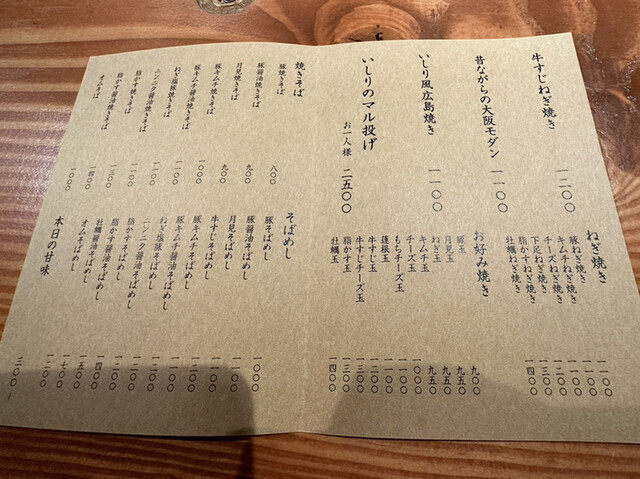 牛すじねぎ焼き 一二〇〇
昔ながらの大阪モダン 一一〇〇
いしり風広島焼き 一一〇〇
いしりのマル投げ お一人様 二五〇〇
ねぎ焼き
豚ねぎ焼き 一一〇〇
キムチねぎ焼き 一一〇〇
チーズねぎ焼き 一一〇〇
下足ねぎ焼き 一二〇〇
脂かすねぎ焼き 一三〇〇
牡蠣ねぎ焼き 一四〇〇
お好み焼き
豚玉 九〇〇
月見玉 九五〇
ねぎ玉 九五〇
キムチ玉 九五〇
チーズ玉 一〇〇〇
もちチーズ玉 一一〇〇
蓮根玉 一一〇〇
牛すじ玉 一二〇〇
牛すじチーズ玉 一三〇〇
脂かす玉 一三〇〇
牡蠣玉 一四〇〇
焼きそば
豚焼きそば 八〇〇
豚醤油焼きそば 九〇〇
月見焼きそば 九〇〇
豚キムチ焼きそば 一〇〇〇
豚キムチ醤油焼きそば
ねぎ塩豚焼きそば
ニンニク醤油焼きそば
脂かす焼きそば 一三〇〇
脂かす醤油焼きそば 一四〇〇
オムそば 一〇〇〇
そばめし
豚そばめし 一〇〇〇
豚醤油そばめし 一一〇〇
月見そばめし 一一〇〇
牛すじそばめし
豚キムチそばめし
豚キムチ醤油そばめし
ねぎ塩豚そばめし
ニンニク醤油そばめし
脂かすそばめし
脂かす醤油そばめし 一五〇〇
牡蠣醤油そばめし 一七〇〇
オムそばめし 一二〇〇
本日の甘味 三〇〇〜